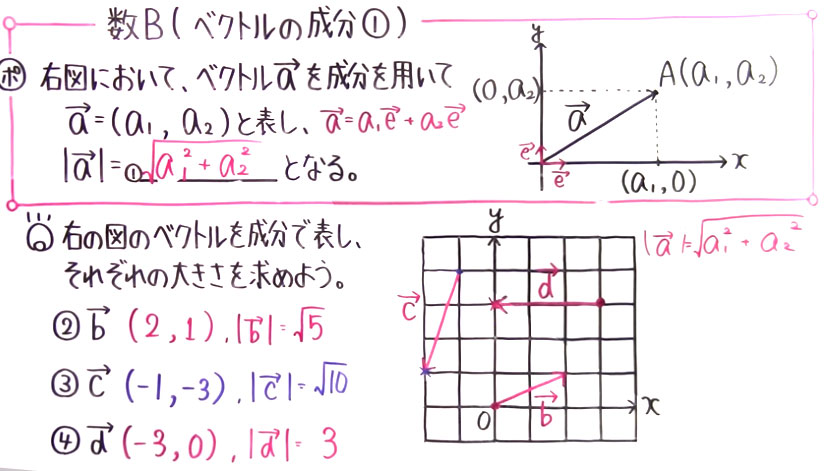 数B(ベクトルの成分①)
ポ 右図において、ベクトルa⃗を成分を用いて
a⃗=(a₁, a₂)と表し、a⃗=a₁e⃗+a₂e⃗
|a⃗|=①√a₁²+a₂² となる。
y
(0,a₂)
A(a₁,a₂)
a⃗
e⃗
e⃗
x
(a₁,0)
右の図のベクトルを成分で表し、
それぞれの大きさを求めよう。
②b⃗ (2,1),|b⃗|=√5
③c⃗ (-1,-3),|c⃗|=√10
④d⃗ (-3,0),|d⃗|=3
y
|a⃗|=√a₁²+a₂²
d⃗
c⃗
x
O
b⃗